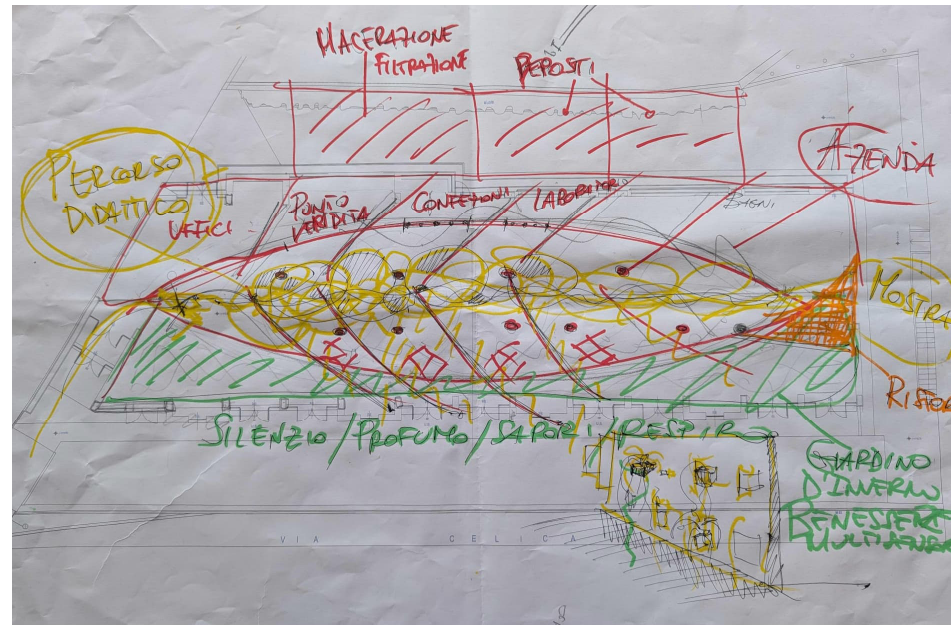 MACERAZIONE
FILTRAZIONE
DEPOSTI
AZIENDA
PERCORSO
DIDATTICO
UFFICI
PUNTO
VENDITA
CONFEZIONI
LABORATORI
BAGNI
MOSTR
RISTO
SILENZIO / PROFUMO / SAPORI / RESPIRO
GIARDINO
D'INVERNO
BENESSERE
VIA CELICA